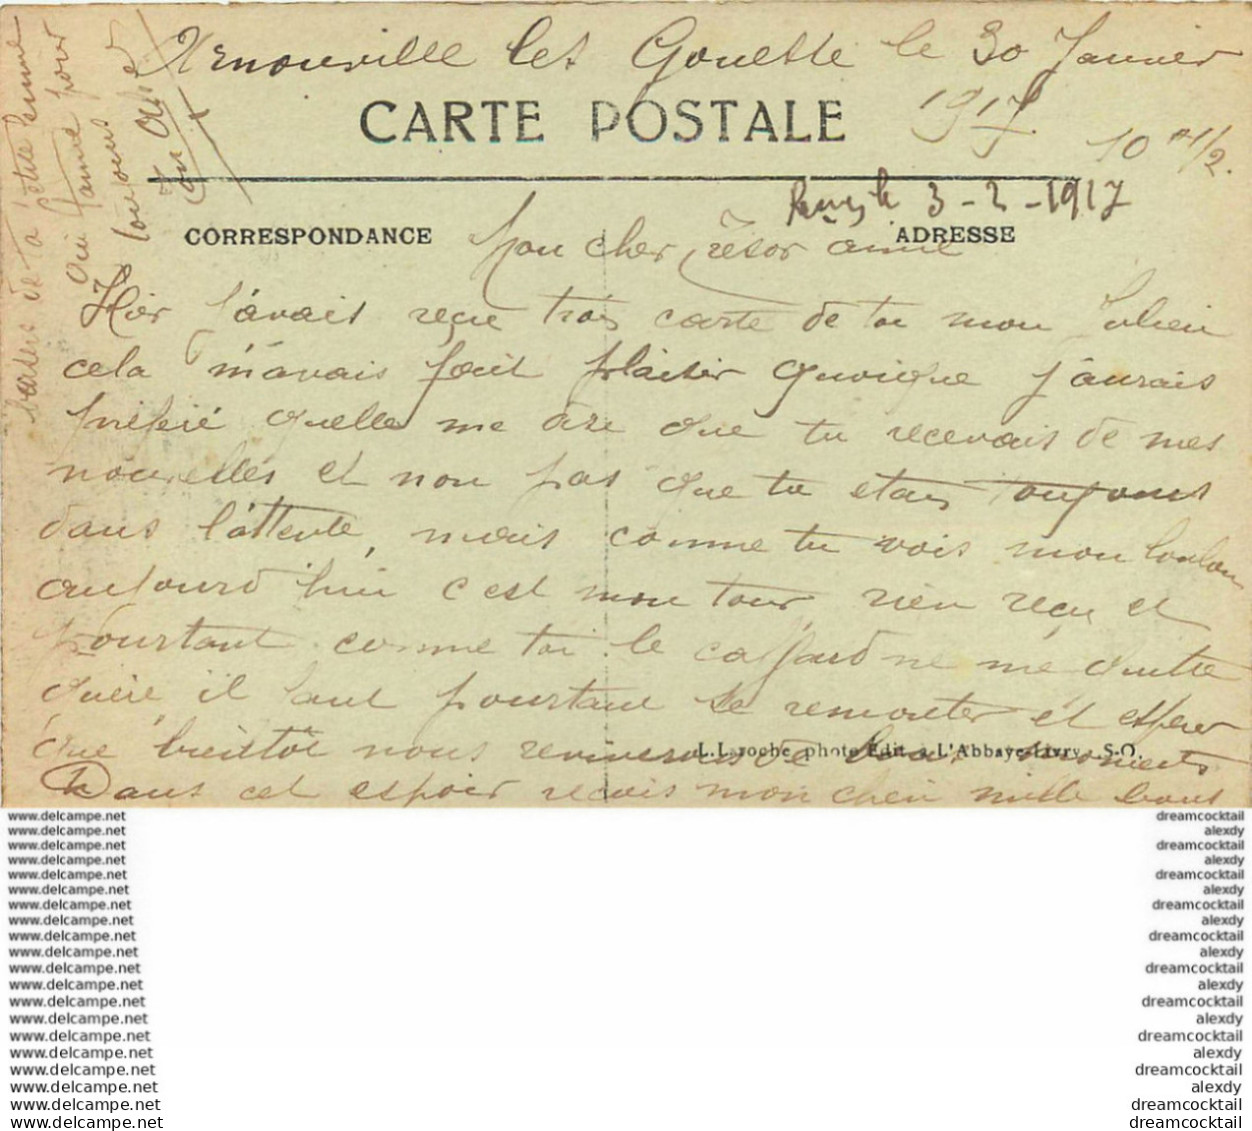 Arnouville les Gonesse le 30 Janvier
1917
CARTE POSTALE
10 H 1/2.
3-2-1917
CORRESPONDANCE
ADRESSE
Mon cher Trésor aimé
Hier j'avais reçu trois carte de toi mon Julien
cela m'avais fait plaisir quoique j'aurais
préféré quelle me dire que tu recevais de mes
nouvelles et non pas que tu etais toujours
dans l'attente, mais comme tu vois mon loulou
aujourd'hui c'est mon tour rien reçu et
pourtant comme toi le caffard ne me quitte
guère il faut pourtant se remonter et esperer
que bientôt nous reviverons de bons moments
L. Laroche, photo Edit. à L'Abbaye-Livry - S-O.
Dans cet espoir reçois mon cheri mille bons
baisers de ta petite femme
qui t'aime pour
toujours
www.delcampe.net
www.delcampe.net
www.delcampe.net
www.delcampe.net
www.delcampe.net
www.delcampe.net
www.delcampe.net
www.delcampe.net
www.delcampe.net
www.delcampe.net
www.delcampe.net
www.delcampe.net
www.delcampe.net
www.delcampe.net
www.delcampe.net
www.delcampe.net
www.delcampe.net
www.delcampe.net
www.delcampe.net
www.delcampe.net
dreamcocktail
alexdy
dreamcocktail
alexdy
dreamcocktail
alexdy
dreamcocktail
alexdy
dreamcocktail
alexdy
dreamcocktail
alexdy
dreamcocktail
alexdy
dreamcocktail
alexdy
dreamcocktail
alexdy
dreamcocktail
dreamcocktail